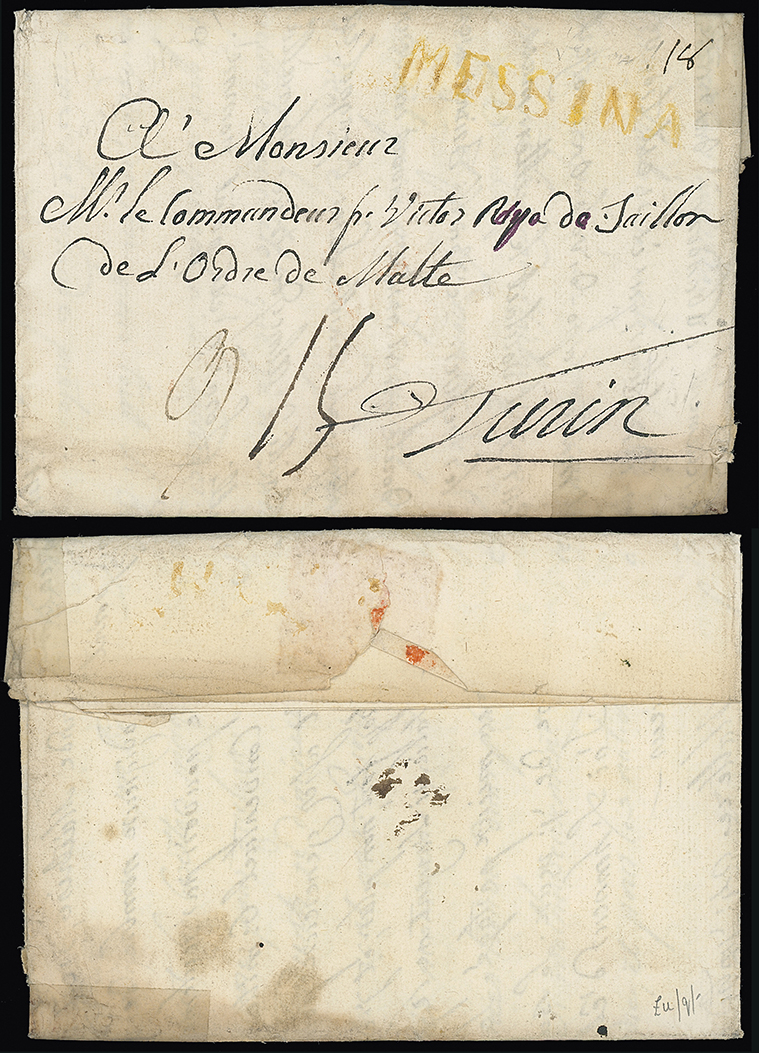 MESSINA
18
A' Monsieur
Mr. le Commandeur fr. Victor de Saillon
de L'Ordre de Malte
15 Turin